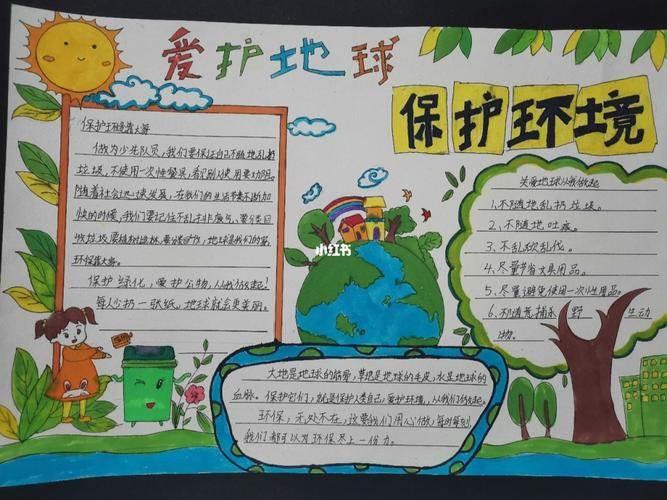 爱护地球
保护环境
保护环境靠大家
做为少先队员，我们要保证自己不随地乱扔
垃圾，不使用一次性餐具，看到别人使用要劝阻。
随着社会迅速发展，在我们的生活节奏不断加
快的时候，我们要记住不乱排废气，要分类回
收垃圾要植树造林，地球是我们的家，
环保靠大家。
保护绿化，爱护公物，从我做起！
每人少扔一张纸，地球就会更美丽。
小红书
关爱地球从我做起
1、不随地乱扔垃圾。
2、不随地吐痰。
3、不乱砍乱伐。
4、尽量节省文具用品。
5、尽量避免使用一次性用品。
6、不随意捕杀野生动
物。
大地是地球的筋骨，草地是地球的毛皮，水是地球的
血脉。保护它们，就是保护人类自己，爱护环境，从我们做起。
环保，无处不在，这要我们用心做，每时每刻
我们都可以为环保尽上一份力。